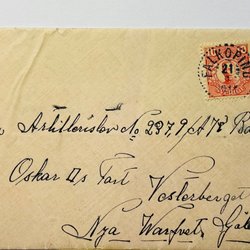 FALKÖPING
21
Artilleristen No 237, 9/A7s
Oskar IIs Fort Vesterberget
Nya Warfvet